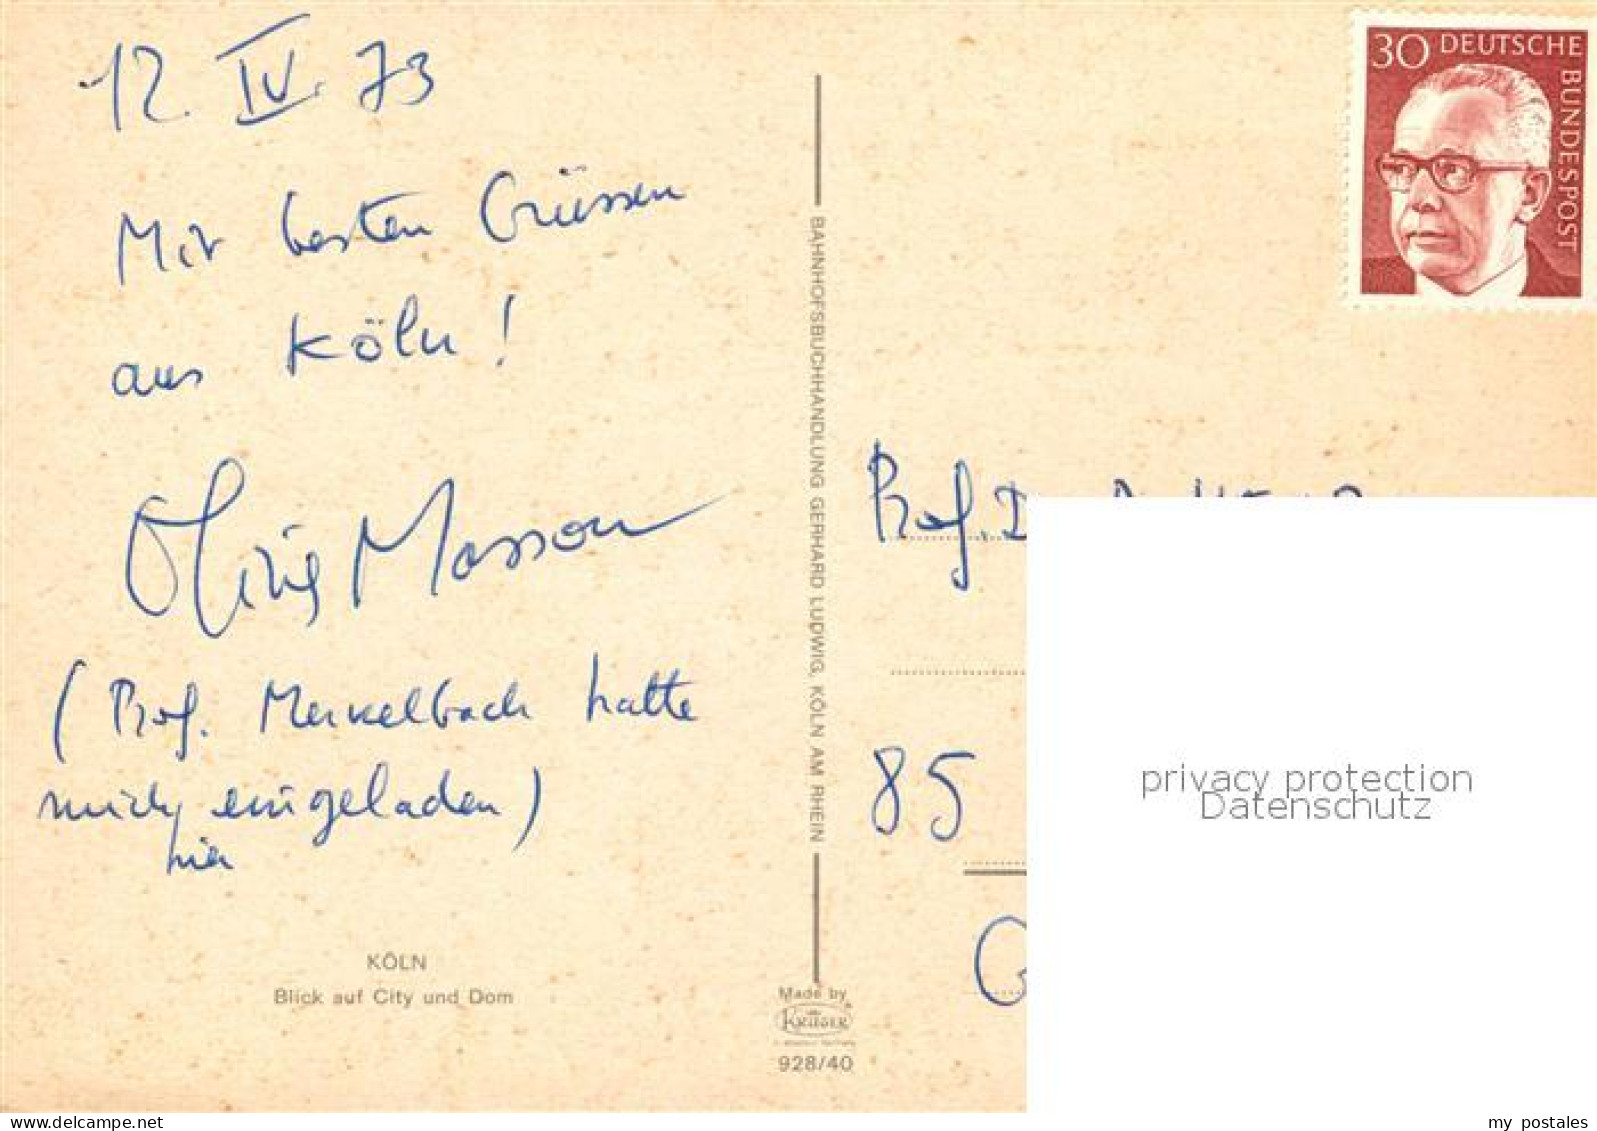 12. IV. 73
Mit besten Grüssen
aus Köln!
Olivier Masson
(Prof. Merkelbach hatte
mich eingeladen)
hier
KÖLN
Blick auf City und Dom
BAHNHOFSBUCHHANDLUNG GERHARD LUDWIG, KÖLN AM RHEIN
Made by
KRÜGER
928/40
30 DEUTSCHE
BUNDESPOST
Prof. D
85
privacy protection
Datenschutz
my postales